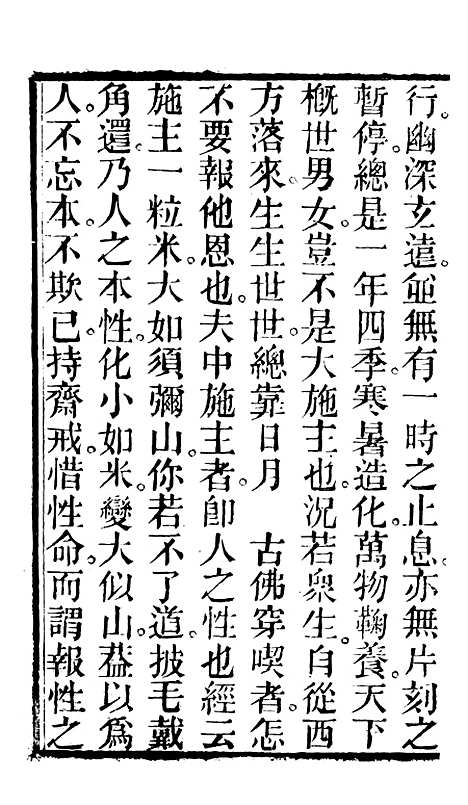 行。幽深玄遠。並無有一時之止息。亦無片刻之
暫停。總是一年四季。寒暑造化。萬物鞠養。天下
概世男女。豈不是大施主也。況若衆生。自從西
方落來。生生世世。總靠日月　古佛穿喫者。怎
不要報他恩也。夫中施主者。卽人之性也。經云
施主一粒米。大如須彌山。你若不了道。披毛戴
角還。乃人之本性。化小如米。變大似山。葢以爲
人。不忘本。不欺已。持齋戒。惜性命。而謂報性之